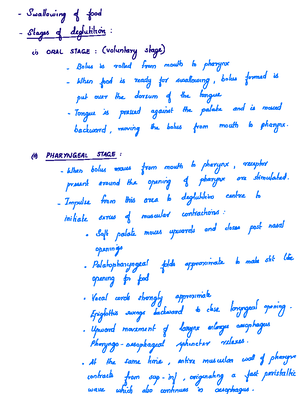 - Swallowing of food
- Stages of deglutition :
(i) ORAL STAGE : (voluntary stage)
- Bolus is rolled from mouth to pharynx
- When food is ready for swallowing, bolus formed is
put over the dorsum of the tongue
- Tongue is pressed against the palate and is moved
backward, moving the bolus from mouth to pharynx.
(ii) PHARYNGEAL STAGE :
- When bolus moves from mouth to pharynx, receptor
present around the opening of pharynx are stimulated.
- Impulse from this area to deglutition centre to
initiate series of muscular contractions :
• Soft palate moves upwards and close post nasal
openings
• Palatopharyngeal folds approximate to make slit like
opening for food
• Vocal cords strongly approximate
Epiglottis swings backward to close laryngeal opening.
• Upward movement of larynx enlarges oesophagus
Pharyngo-oesophageal sphincter relaxes.
• At the same time, entire muscular wall of pharynx
contracts from sup - inf, originating a fast peristaltic
wave which also continues in oesophagus.